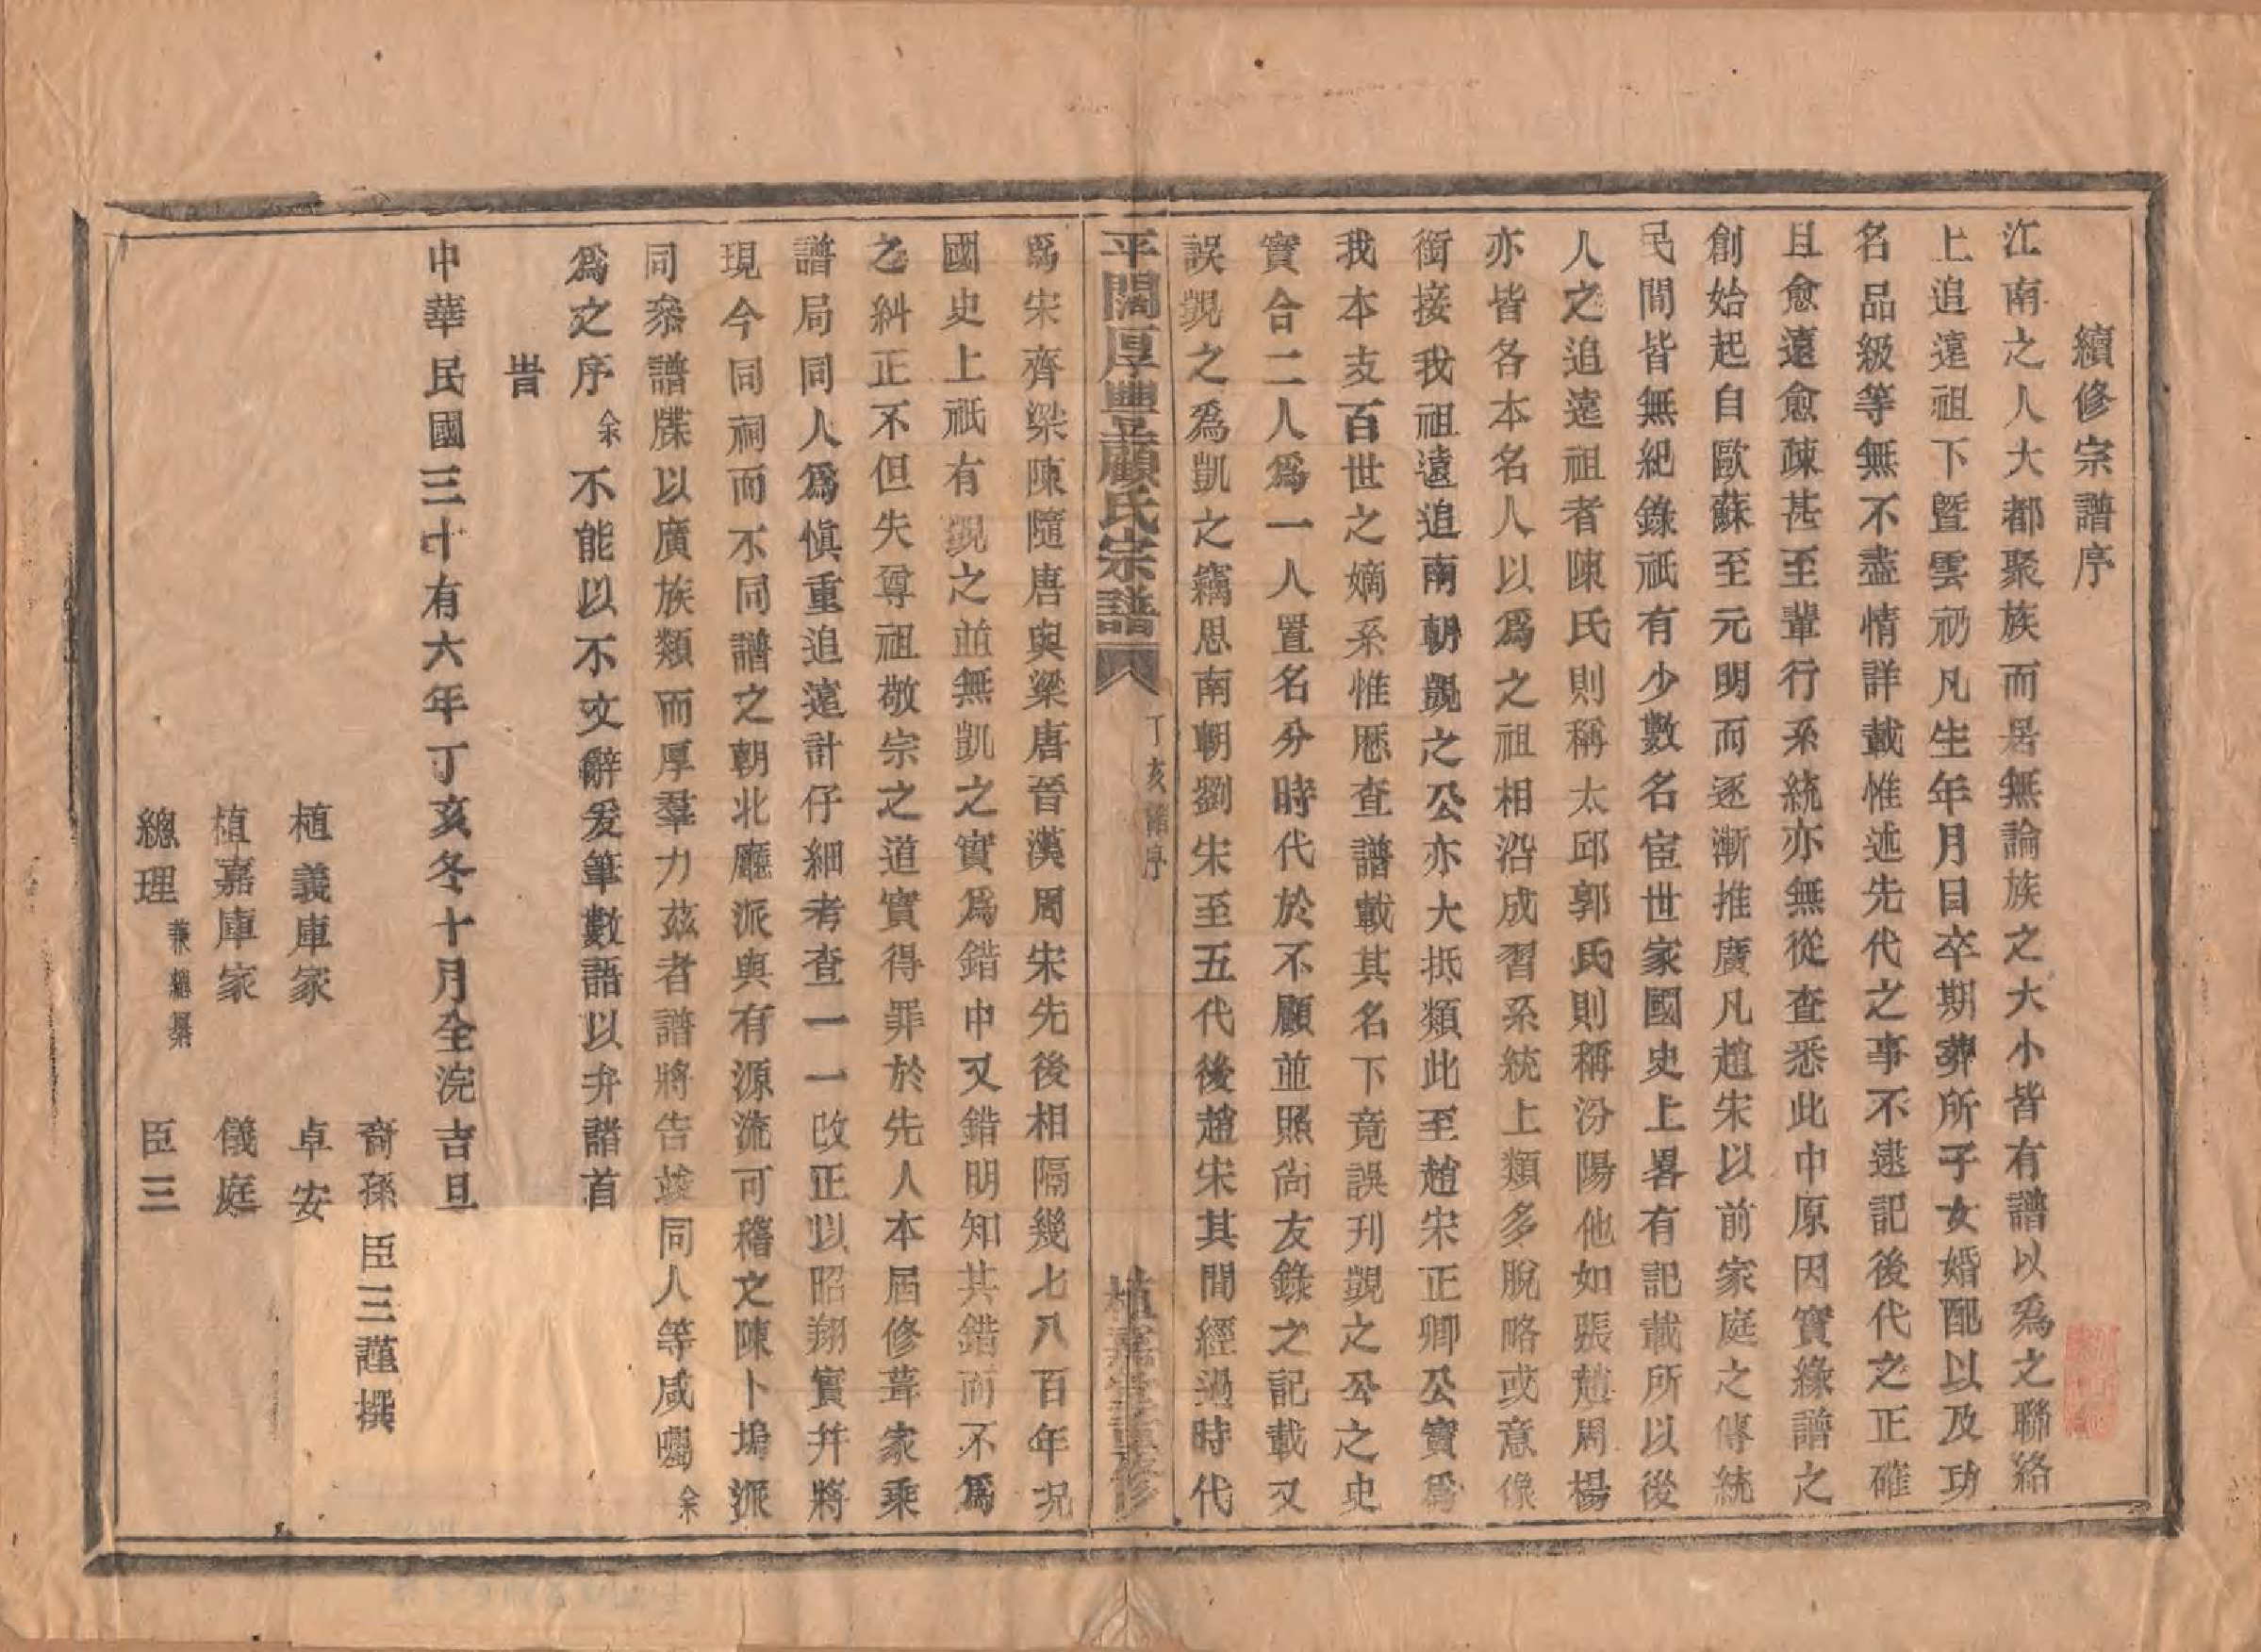 續修宗譜序
江南之人大都聚族而居無論族之大小皆有譜以爲之聯絡
上追遠祖下曁雲礽凡生年月日卒期葬所子女婚配以及功
名品級等無不盡情詳載惟述先代之事不逮記後代之正確
且愈遠愈疎甚至輩行系統亦無從查悉此中原因實緣譜之
創始起自歐蘇至元明而逐漸推廣凡趙宋以前家庭之傳統
民間皆無紀錄祇有少數名宦世家國史上畧有記載所以後
人之追遠祖者陳氏則稱太邱郭氏則稱汾陽他如張趙周楊
亦皆各本名人以爲之祖相沿成習系統上類多脫略或意像
銜接我祖遠追南朝覬之公亦大抵類此至趙宋正卿公實爲
我本支百世之嫡系惟厯查譜載其名下竟誤刊覬之公之史
實合二人爲一人置名分時代於不顧並照尙友錄之記載又
誤覬之爲凱之竊思南朝劉宋至五代後趙宋其間經過時代
平閣厚豐顧氏宗譜
丁亥譜序
植嘉堂重修
爲宋齊梁陳隨唐與梁唐晉漢周宋先後相隔幾七八百年况
國史上祇有覬之並無凱之實爲錯中又錯明知其錯而不爲
之糾正不但失尊祖敬宗之道實得罪於先人本屆修葺家乘
譜局同人爲愼重追遠計仔細考查一一改正以昭翔實幷將
現今同祠而不同譜之朝北廳派與有源流可稽之陳卜塢派
同叅譜牒以廣族類而厚羣力茲者譜將告竣同人等咸囑余
爲之序余不能以不文辭爰筆數語以弁諸首
旹
中華民國三十有六年丁亥冬十月全浣吉旦
裔孫臣三謹撰
植義庫家 卓安
植嘉庫家 儀庭
總理兼總纂 臣三